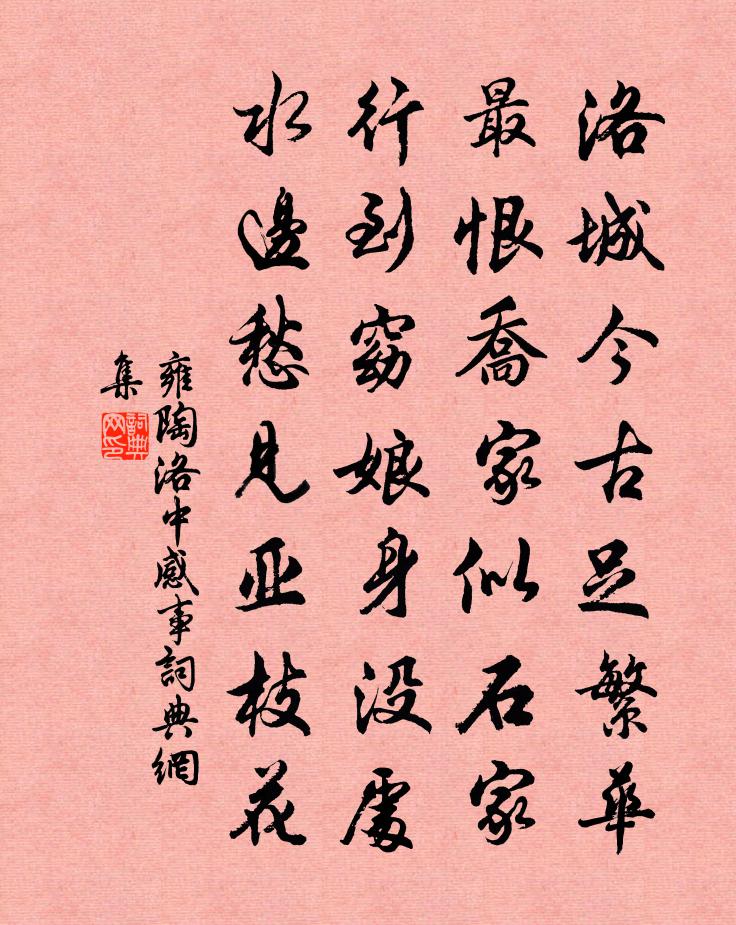 洛城今古足繁華
最恨喬家似石家
行到窈娘身没處
水邊愁見亚枝花
雍陶洛中感事詞典網
集
詞典
网印